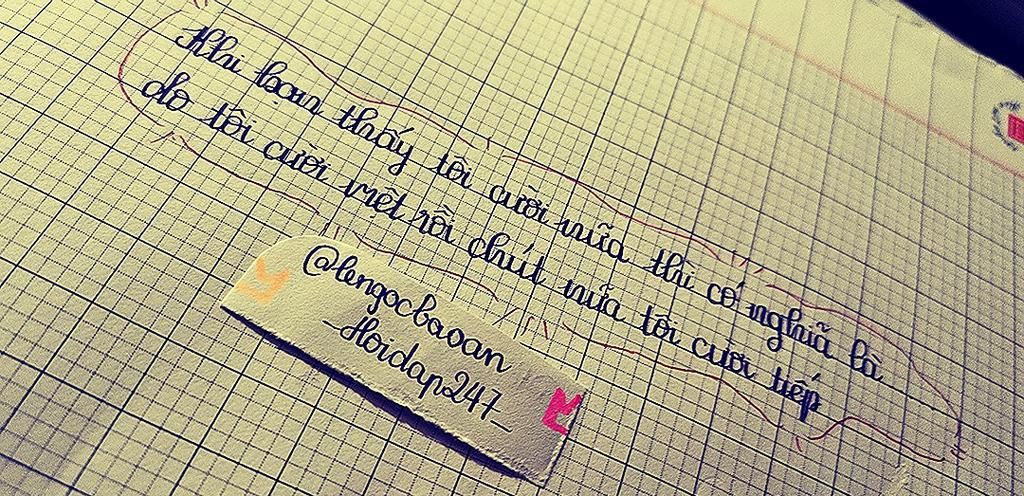 Khi bạn thấy tôi cười nữa thì có nghĩa là
do tôi cươi mệt rồi chút nữa tôi cươi tiếp
@lengocbaoan
_Hoidap247_